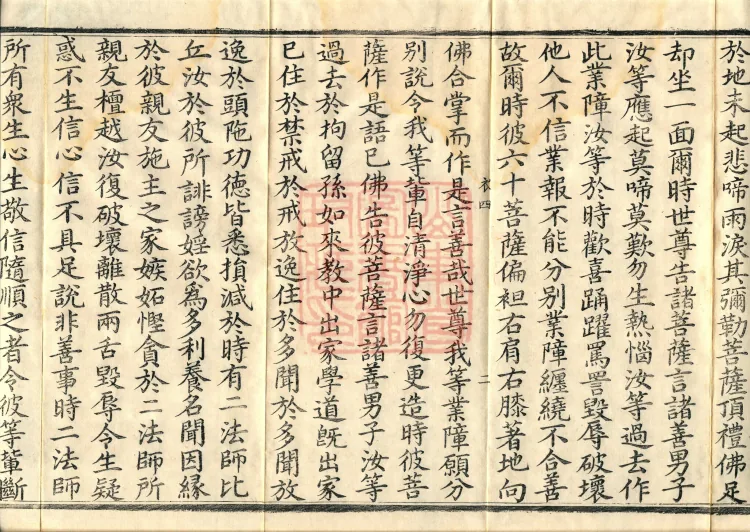 於地未起悲啼雨淚其彌勒菩薩頂禮佛足
却坐一面爾時世尊告諸菩薩言諸善男子
汝等應起莫啼莫歎勿生熱惱汝等過去作
此業障汝等於時歡喜踊躍罵詈毀辱破壞
他人不信業報不能分別業障纏繞不合善
故爾時彼六十菩薩偏袒右肩右膝著地向
衣四 二
佛合掌而作是言善哉世尊我等業障願分
別說令我等輩自清淨心勿復更造時彼菩
薩作是語已佛告彼菩薩言諸善男子汝等
過去於拘留孫如來教中出家學道旣出家
已住於禁戒於戒放逸住於多聞於多聞放
逸於頭陁功德皆悉損減於時有二法師比
丘汝於彼所誹謗婬欲爲多利養名聞因緣
於彼親友施主之家嫉妬慳貪於二法師所
親友檀越汝復破壞離散兩舌毀辱令生疑
惑不生信心信不具足說非善事時二法師
所有衆生心生敬信隨順之者令彼等輩斷